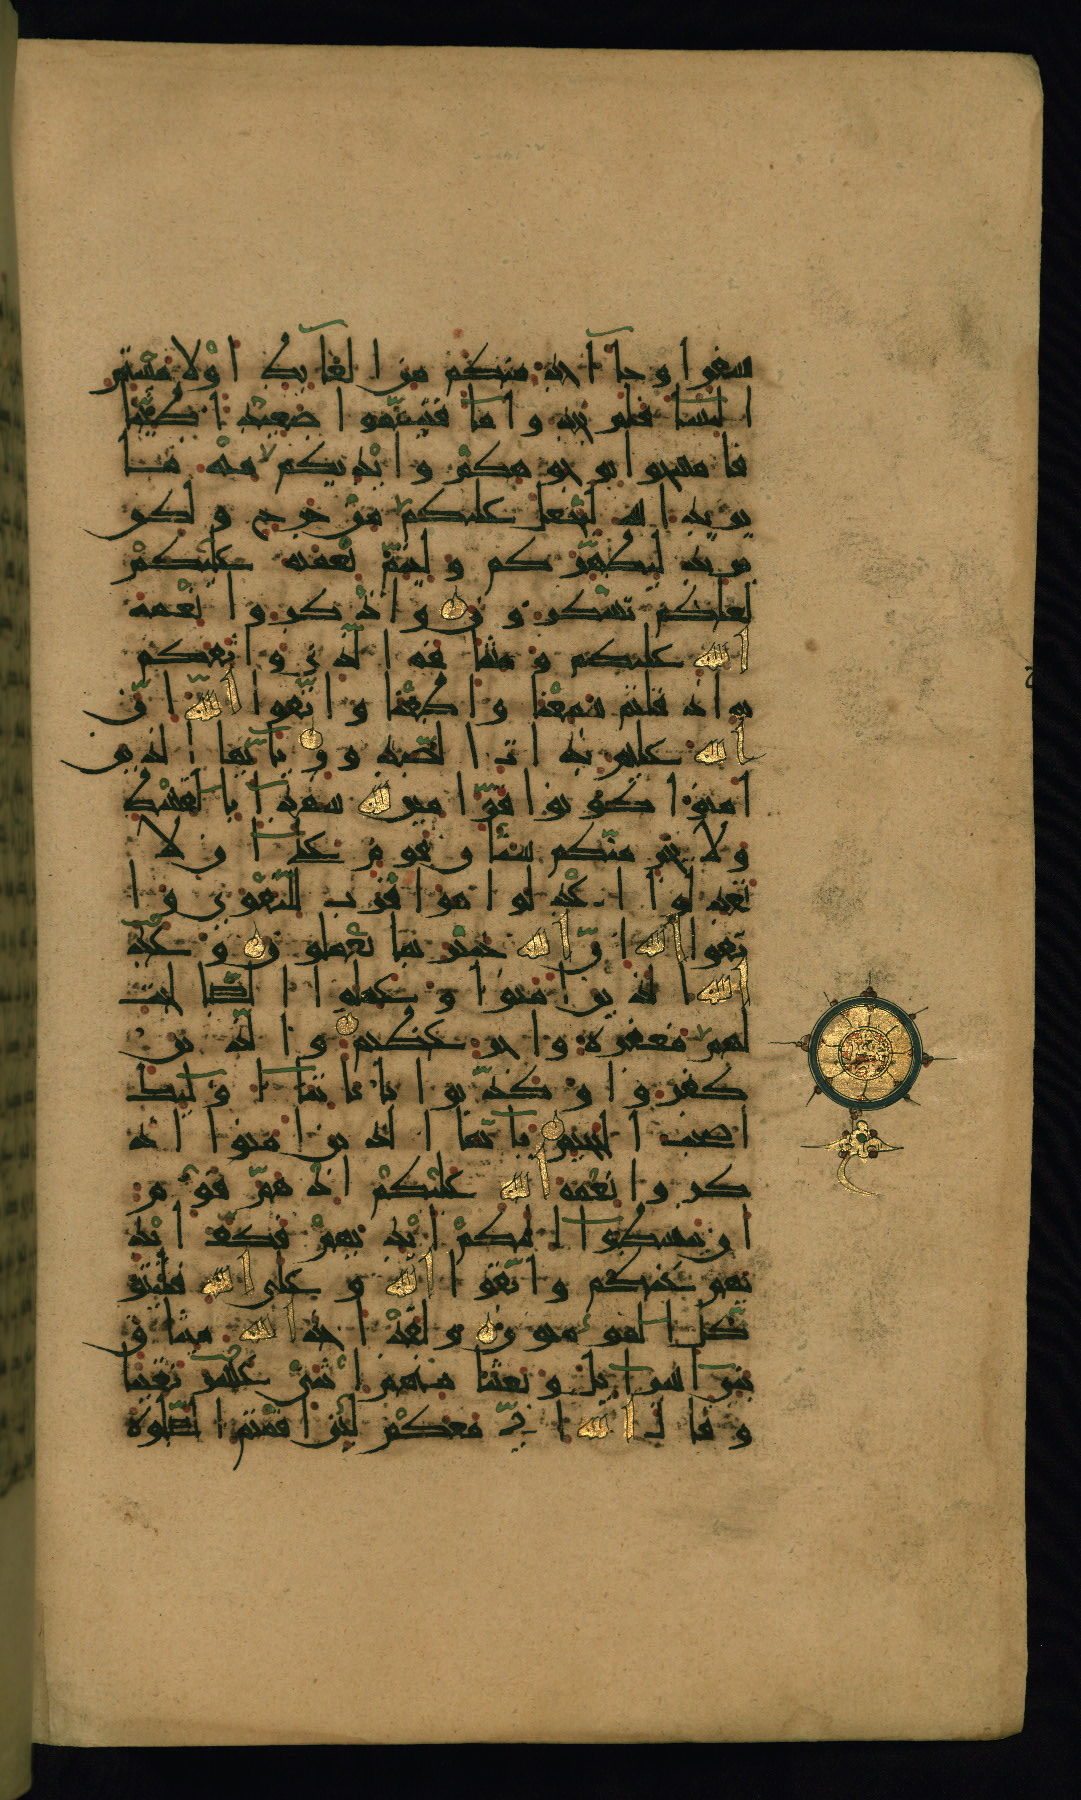 سفر ا و جا أحد منكم من ا لغا ئط ا و لا مستم
ا لنسا فلم تجد و ا ما فتيمموا صعيد ا طيبا
فا مسحوا بو جو هكم و ا يد يكم منه ما
ير يد ا لله ليجعل عليكم من حرج و لكن
ير يد ليطهر كم و ليتم نعمته عليكم
لعلكم تشكر و ن و ا ذ كر و ا نعمة
ا لله عليكم و ميثا قه ا لذ ي و ا ثقكم
به ا ذ قلتم سمعنا و ا طعنا و ا تقوا ا لله ا ن
ا لله عليم بذ ا ت ا لصد و ر يا يها ا لذ ين
ا منوا كو نوا قو ا مين لله شهد ا با لقسط
و لا يجر منكم شنا ن قو م على ا ن لا
تعد لوا ا عد لوا هو ا قر ب للتقو ى و ا
تقوا ا لله ا ن ا لله خبير بما تعملو ن و عد
ا لله ا لذ ين ا منوا و عملوا ا لصا لحت
لهم مغفرة و ا جر عظيم و ا لذ ين
كفر و ا و كذ بوا با يا تنا ا و لئك
ا صحب ا لجحيم يا يها ا لذ ين ا منوا ا ذ
كر و ا نعمة ا لله عليكم ا ذ هم قو م
ا ن يبسطوا ا ليكم ا يد يهم فكف ا يد
يهم عنكم و ا تقو ا ا لله و على ا لله فليتو
كل ا لمو منو ن و لقد ا خذ ا لله ميثا ق
بني ا سر ا ئل و بعثنا منهم ا ثني عشر نقيبا
و قا ل ا لله ا ني معكم لئن ا قمتم ا لصلوة